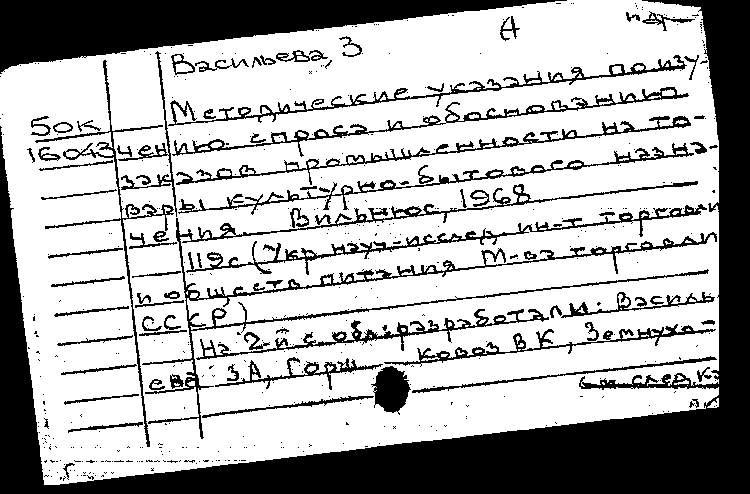 А
Васильева, З
50к Методические указания по изу-
16043 чению спроса и обоснованию
заказов промышленности на то-
вары культурно-бытового назна-
чения. Вильнюс, 1968
119с (Укр. науч-исслед. ин-т торговли
и обществ питания М-ва торговли
СССР)
На 2-й с обл: разработали: Василь-
ева З.А, Горш ковоз В К, Земнуха-
См след. К